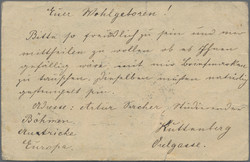 Euer Wohlgeboren!
Bitte so freundlich zu sein und mir
mittheilen zu wollen ob es Ihnen
gefällig wäre mit mir Briefmarken
zu tauschen. Dieselben müssen
gestempelt sein.
Adresse: Artur Studierender
Böhmen Kuttenberg
Austriche
Europa